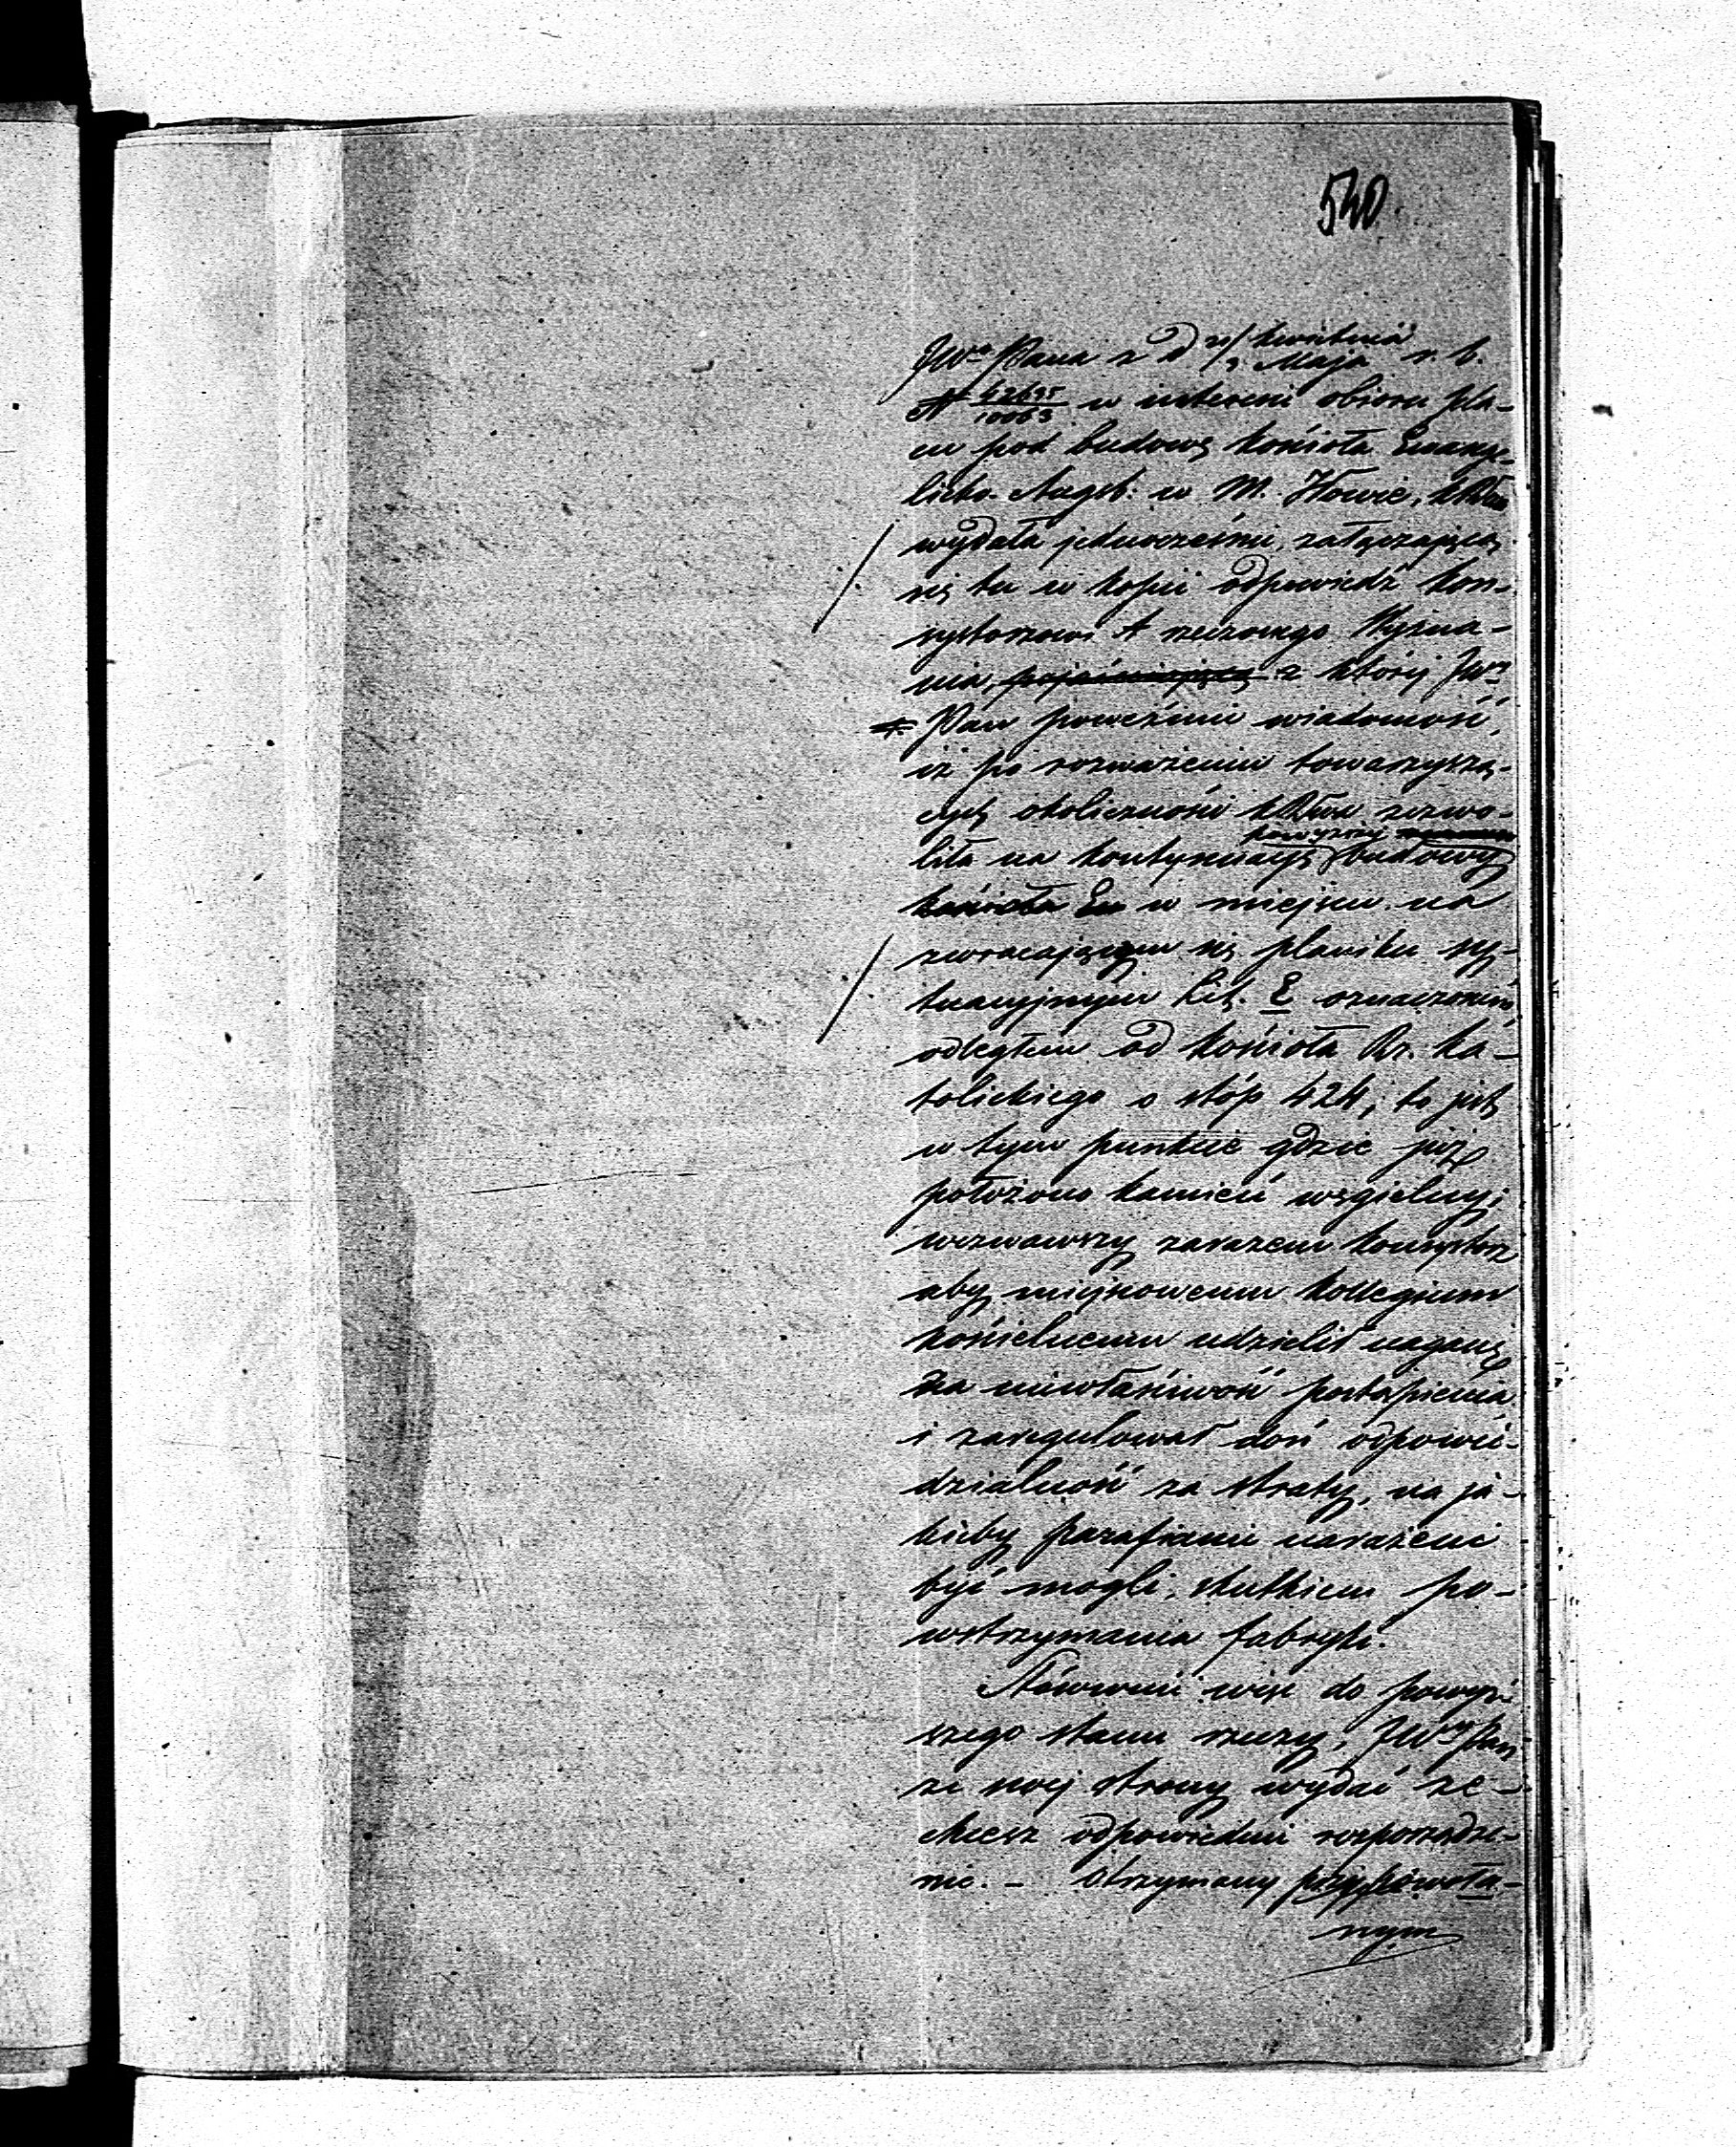 540.
JWo Pana z d 21/3 Kwietnia Maja r. b.
N 42695/10063 w interesie obioru pla-
cu pod budowę kościoła Ewange-
licko. Augsb: w M. Iłowie, KRSw
wydała jednocześnie, załączającą
się tu w kopii odpowiedź kon-
systorzowi tt rzeczonego Wyzna-
nia, pojaśniającą z której JWny
Pan poweźmie wiadomość,
iż po rozważeniu towarzyszą-
cych okoliczności KRSw zezwo-
powyższej
liła na kontynuacyę budowy
kościoła Ew w miejscu na
zwracającym się planiku sy-
tuacyjnym Lit. E oznaczonem,
odległem od kościoła Rz. Ka-
tolickiego o stóp 424, to jest
w tym punkcie gdzie już
położono kamień węgielny;
wezwawszy zarazem konsystorz
aby miejscowemu kollegium
kościelnemu udzielił naganę
za niewłaściwość postąpienia
i zaregulował doń odpowie-
dzialność za straty, na ja-
kieby parafianie narażeni
być mogli, skutkiem po-
wstrzymania fabryki.
Stósownie więc do powyż-
szego stanu rzeczy, JWny Pan
ze swej strony wydać ze-
chcesz odpowiednie rozporządze-
nie. - Otrzymany przy powoła-
nym